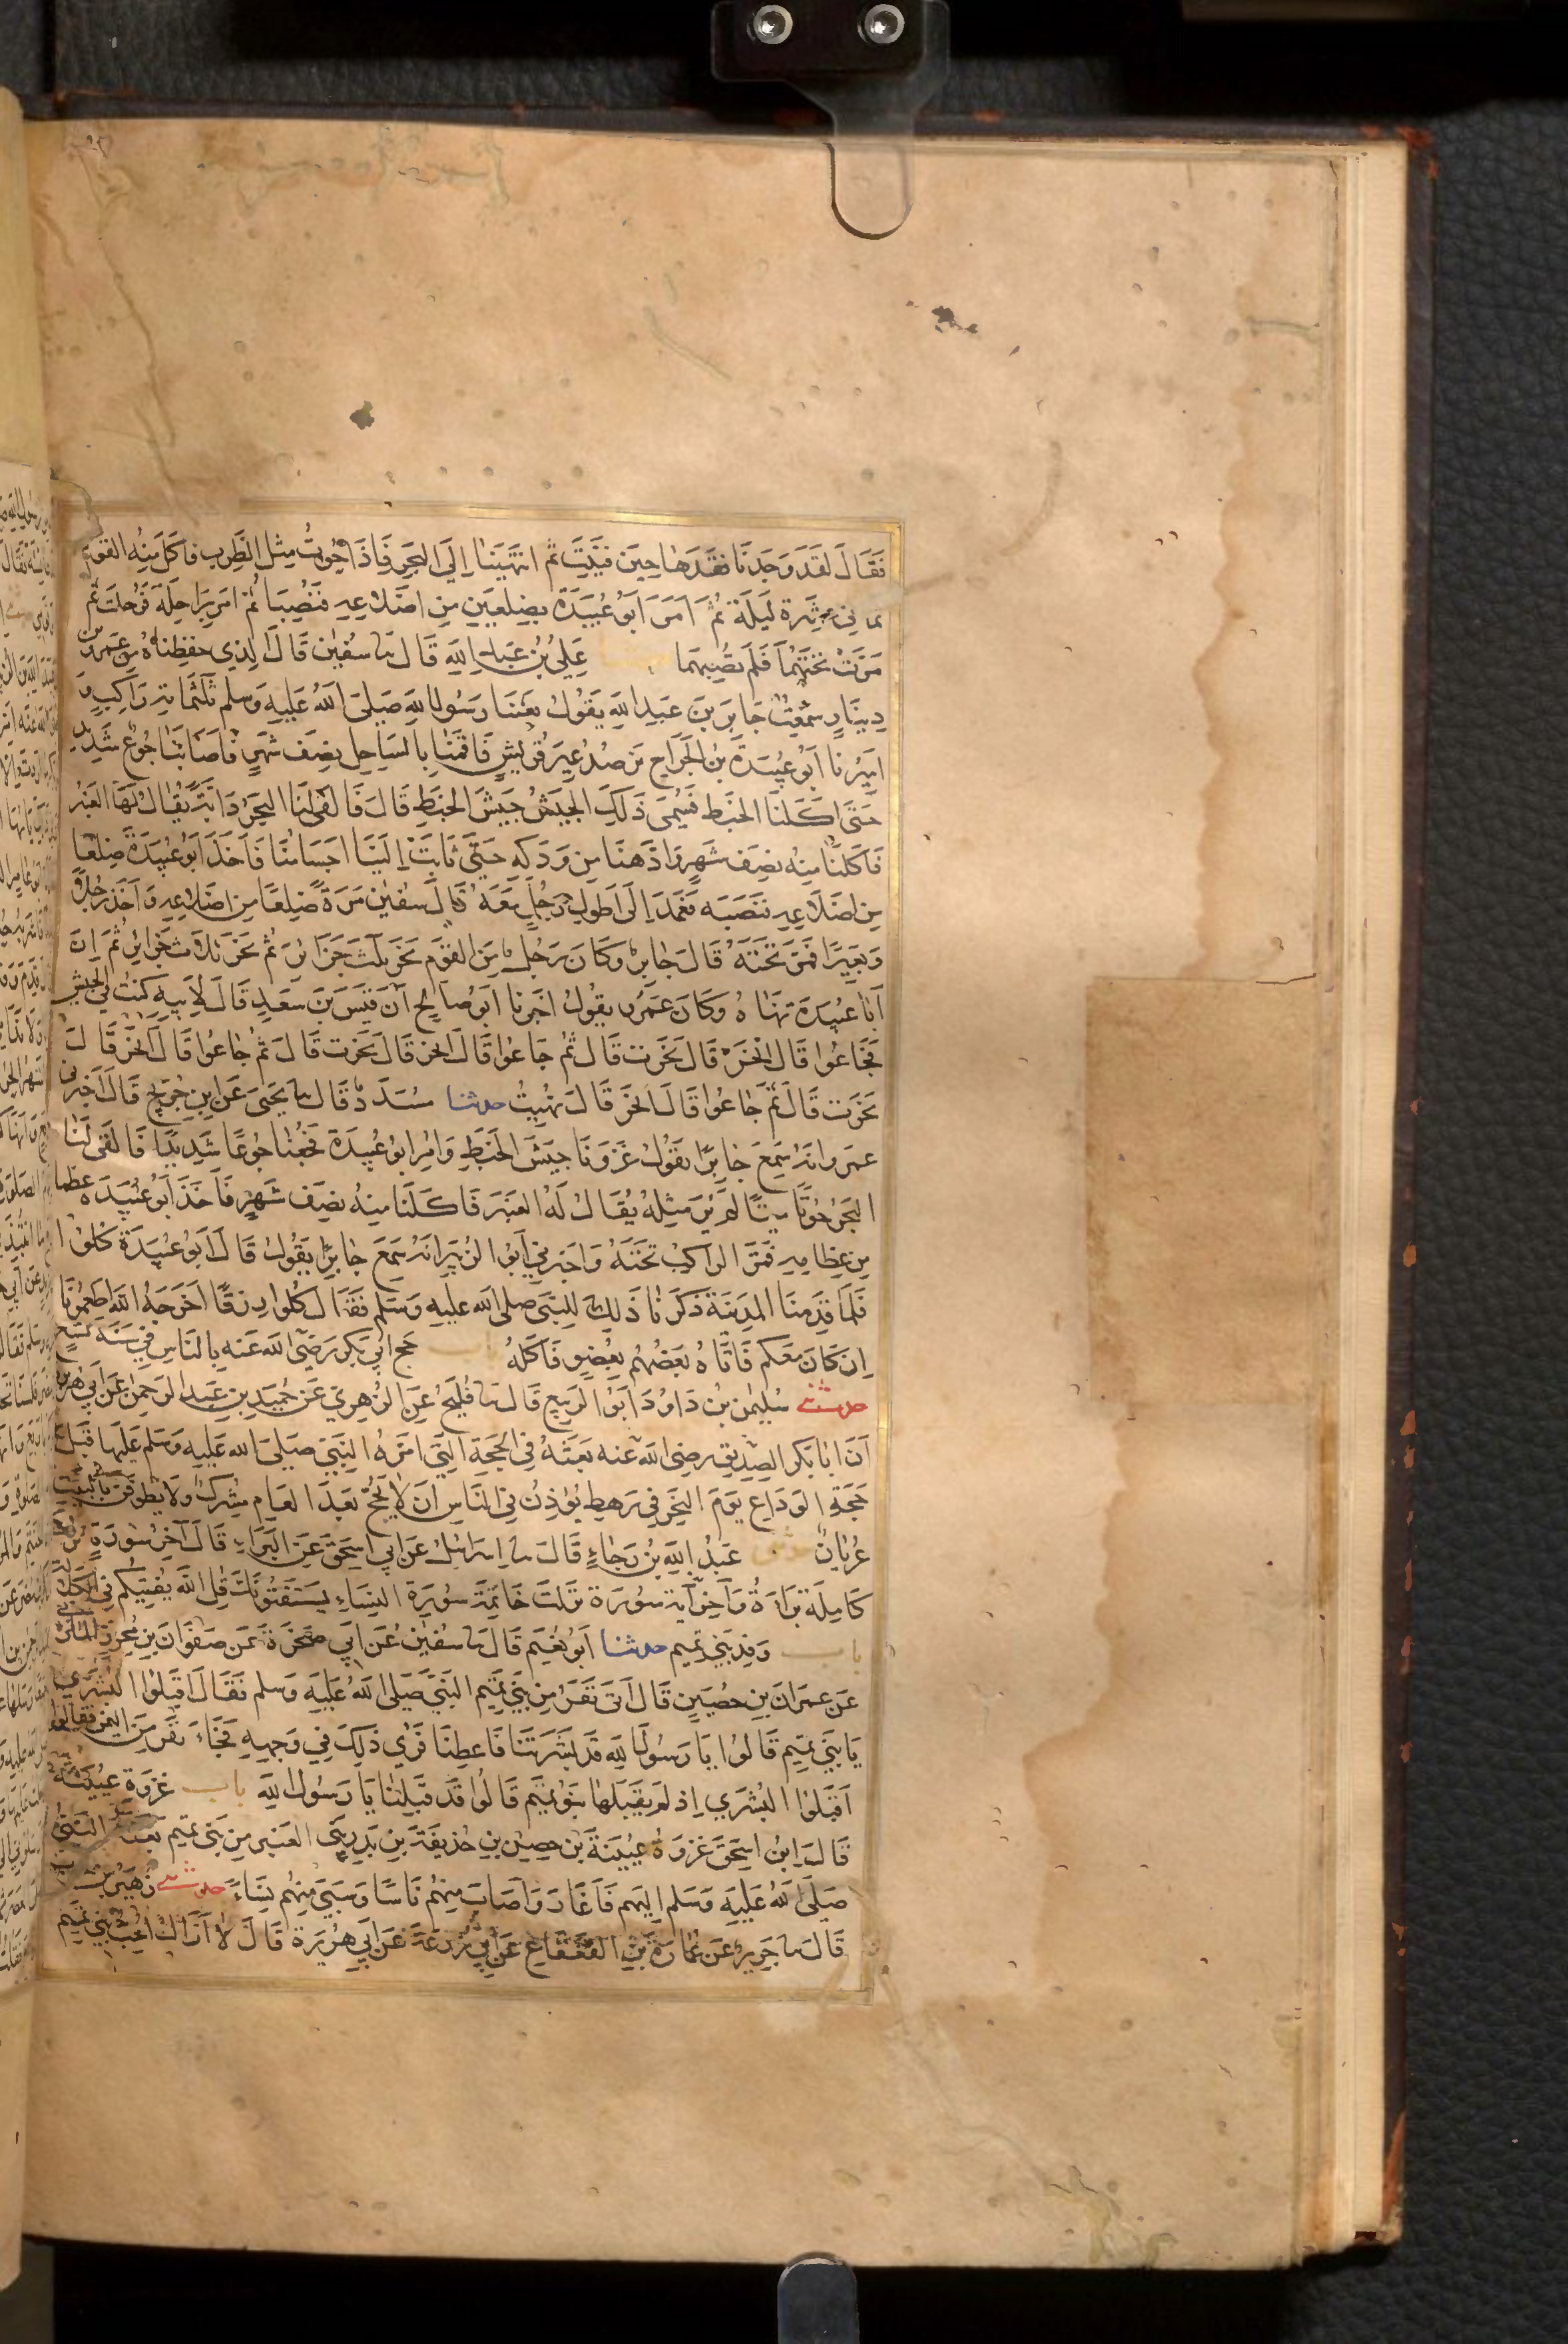 فَقَالَ لَقَد وَجَدنَا فَقدَهَا حِينَ فَنِيَت ثُم انتَهَينَا اِلَى البَحرِ فَاِذَا حُوتٌ مِثل الظَّرِبِ فاكَلَ مِنه القَومُ
ثُمَّ اَمَرَ اَبُو عُبَيدَةَ بِضِلعَينِ مِن اَضلَاعِهِ فَنُصِبَا ثُمّ امر بِرَاحِلَةٍ فَرُحِلَت ثُم
مَرَّت تَحتَهُمَا فَلَم تُصِبهُمَا عَلِيُّ بنُ عَبدِ اللّهِ قَالَ نا سُفيٰن قَالَ الذِي حفِظنَاهُ مِن عَمرو بن
دِينَارٍ سَمِعتُ جَابِرَ بنَ عَبدِ اللهِ يَقُولُ بَعَثَنَا رَسُولُ اللهِ صَلى اللهُ عَلَيهِ وَسلم ثَلٰثَمِائةِ رَاكِبٍ وَ
اَمِيرُنا اَبُو عُبَيدَةَ بنُ الجَرَّاحِ نَرصُدُ عِيرَ قُرَيشٍ فَاَقَمنَا بِالسَاحِلِ نِصفَ شَهرٍ فَاَصَابَنَا جُوعٌ شَدِيدٌ
حَتّى اَكَلنَا الخَبَط فَسُمِّىَ ذَلِكَ الجَيشُ جَيشَ الخَبَطِ قَالَ فَالقى لَنَا البَحرُ دَابَّةً يُقَالُ لَهَا العَنبَرُ
فَاَكَلنَا مِنهُ نِصفَ شَهرٍ وَادَّهَنَّا مِن وَدَكِهِ حَتَّى ثَابَت اِلَينَا اَجسَامُنَا فَاَخَذَ اَبُو عُبَيدَةَ ضِلعًا
مِن اَضلَاعِهِ فَنَصَبَه فَعَمَدَ اِلَى اَطوَلِ رَجُلٍ مَعَهُ قَالَ سُفيٰن مَرّةً ضِلعًا مِن اَضلَاعِهِ وَاَخَذَ رَجُلًا
وَبَعِيرًا فَمَرَّ تَحتَهُ قَالَ جَابِرٌ وَكَانَ رَجُلٌ مِنَ القَومِ نَحَرَ ثَلٰثَ جَزَائِرَ ثُم نَحَرَ ثَلَاثَ جَزَائِرَ ثُمّ اِنَّ
اَبَا عُبَيدَةَ نَهَاهُ وَكَانَ عَمرٌو يَقُولُ اخبَرنا اَبُو صَالِحٍ اَنّ قَيسَ بنَ سَعدٍ قَالَ لِاَبِيهِ كُنتُ فِي الجَيشِ
فَجَاعُوا قَالَ انحَر قَالَ نَحَرت قَالَ ثُم جَاعُوا قَالَ انحَر قَالَ نَحَرت قَالَ ثُم جَاعُوا قَالَ انحَر قَالَ
نَحَرت قَالَ ثُم جَاعُوا قَالَ انحَر قَالَ نُهِيتُ حدثنا مُسَدَّدٌ قَالَ نا يَحيى عَن ابنِ جُرَيجٍ قَالَ اَخبَرني
عمرو انَّهُ سَمِعَ جَابِرًا يَقُولُ غَزَونَا جَيشَ الخَبَطِ وَاُمِّرَ ابُو عُبَيدَةَ فَجُعنَا جُوعًا شَدِيدًا فَالقى لَنَا
البَحرُ حُوتًا مَيتًا لَم نَرَ مِثلَهُ يُقَالُ لَهُ العَنبَر فَاَكَلنَا مِنهُ نِصفَ شَهرٍ فَاَخَذَ اَبُو عُبَيدَة عَظمًا
مِن عِظَامِهِ فَمَرَّ الراكِبُ تَحتَهُ وَاخبَرنِي اَبُو الزُّبَيرِ انَّهُ سَمِعَ جَابِرًا يَقُولُ قَالَ اَبُو عُبَيدَةَ كُلُوا
فَلَمَّا قَدِمنَا المَدِينَةَ ذَكَرنَا ذَلِكَ لِلنَّبيّ صلى الله عليهِ وَسَلم فَقَالَ كُلُوا رِزقًا اَخرَجَهُ اللّه اَطعِمُونَا
اِن كَانَ مَعَكُم فَاَتَاهُ بَعضُهُم بِعُضوٍ فَاَكَلَهُ باب حج ابي بَكر رَضَى الله عَنه بِالنَاسِ فِي سَنة تسع
حدثنى سُلَيمٰنُ بنُ دَاوُدَ اَبُو الرَبِيعِ قَالَ نا فُلَيحٌ عَنِ الزُهرِيّ عَن حُمَيدِ بنِ عَبدِ الرَحمٰنِ عَن اَبِي هريرة
اَنَّ اَبَا بَكر الصِدِيق رضى الله عَنه بَعَثَهُ فِي الحَجَّةِ الَّتِي امَّرَهُ النَبيّ صَلى الله عَلَيهِ وَسَلم عَلَيهَا قَبلَ
حَجّةِ الوَدَاعِ يَومَ النَحرِ فِي رَهطٍ يُؤذِّنُ فِي النَاسِ اَن لَا يَحُجَّ بَعدَ العَامِ مُشرِكٌ وَلَا يَطوفنّ بالبَيت
عُريَانٌ حدثنى عَبدُ اللهِ بنُ رَجَاءٍ قَالَ نا اِسرَائيلُ عَن ابي اسحَقَ عَنِ البَرَاءِ قَالَ آخِرُ سُورَةٍ نزلت
كَامِلَةً بَرَاءَةُ وَآخِرُ آية سُورَة نَزَلَت خَاتِمَةُ سُورَةِ النِسَاءِ يَستَفتُونَكَ قُلِ اللّه يُفتِيكُم فِي الكَلالة
باب وَفدِ بَنِي تَمِيم حدثنا اَبُو نُعَيم قَالَ نا سُفيٰن عَن اَبِي صَخرَةَ عَن صَفوَانَ بنِ مُحرِزٍ المازني
عَن عِمرَانَ بنِ حُصَينٍ قَالَ اَتَى نَفَرٌ مِن بَنِي تَمِيم النَّبيَّ صَلى اللهُ عَلَيهِ وسلم فَقَالَ اقبَلُوا البُشرَي
يَا بَنِي تَمِيم قَالُوا يَا رَسُولَ اللهِ قَد بَشَّرتَنَا فَاَعطِنَا فَرُىَ ذَلِكَ فِي وَجهِهِ فَجَاءَ نَفَرٌ مِن اليَمن فقال
اقبَلُوا البُشرَي اِذ لَم يَقبَلهَا بَنُو تَمِيم قَالُوا قَد قَبِلنَا يَا رَسُولَ اللّهِ باب غَزوَة عُيَينَة
قَالَ ابنُ اسحَقَ غَزوَةُ عُيَينَةَ بنِ حِصنِ بنِ حُذَيفَةَ بنِ بَدرٍ بَنِي العَنبَر مِن بَنِي تَمِيم بَعثَهُ النَبيُّ
صَلَّى اللهُ عَلَيهِ وَسَلم اِلَيهِم فَاَغَارَ وَاَصَابَ مِنهُم نَاسًا وَسَبَى مِنهُم نِسَاءً حدثنى زُهَيرُ بن
قَالَ نا جَرِيرٌ عَن عُمَارَةَ بنِ القَعقَاعِ عَن اَبِي زُرعَةَ عَن اَبِي هُرَيرَةَ قَالَ لَا اَزَالُ اُحِبُّ بَنِي تَمِيم